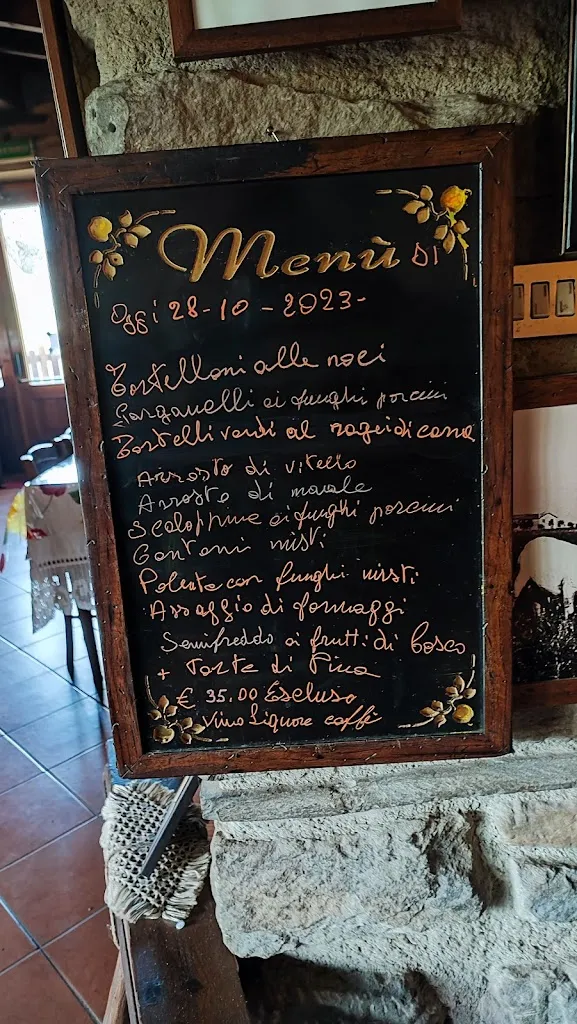 Menù DI
Oggi 28-10-2023-
Tortelloni alle noci
Garganelli ai funghi porcini
Tortelli verdi al ragù di carne
Arrosto di vitello
Arrosto di maiale
Scaloppine ai funghi porcini
Contorni misti
Polenta con funghi misti
Assaggio di formaggi
Semifreddo ai frutti di bosco
+ Torte di Pina
€ 35.00 Escluso
Vino Liquore caffè